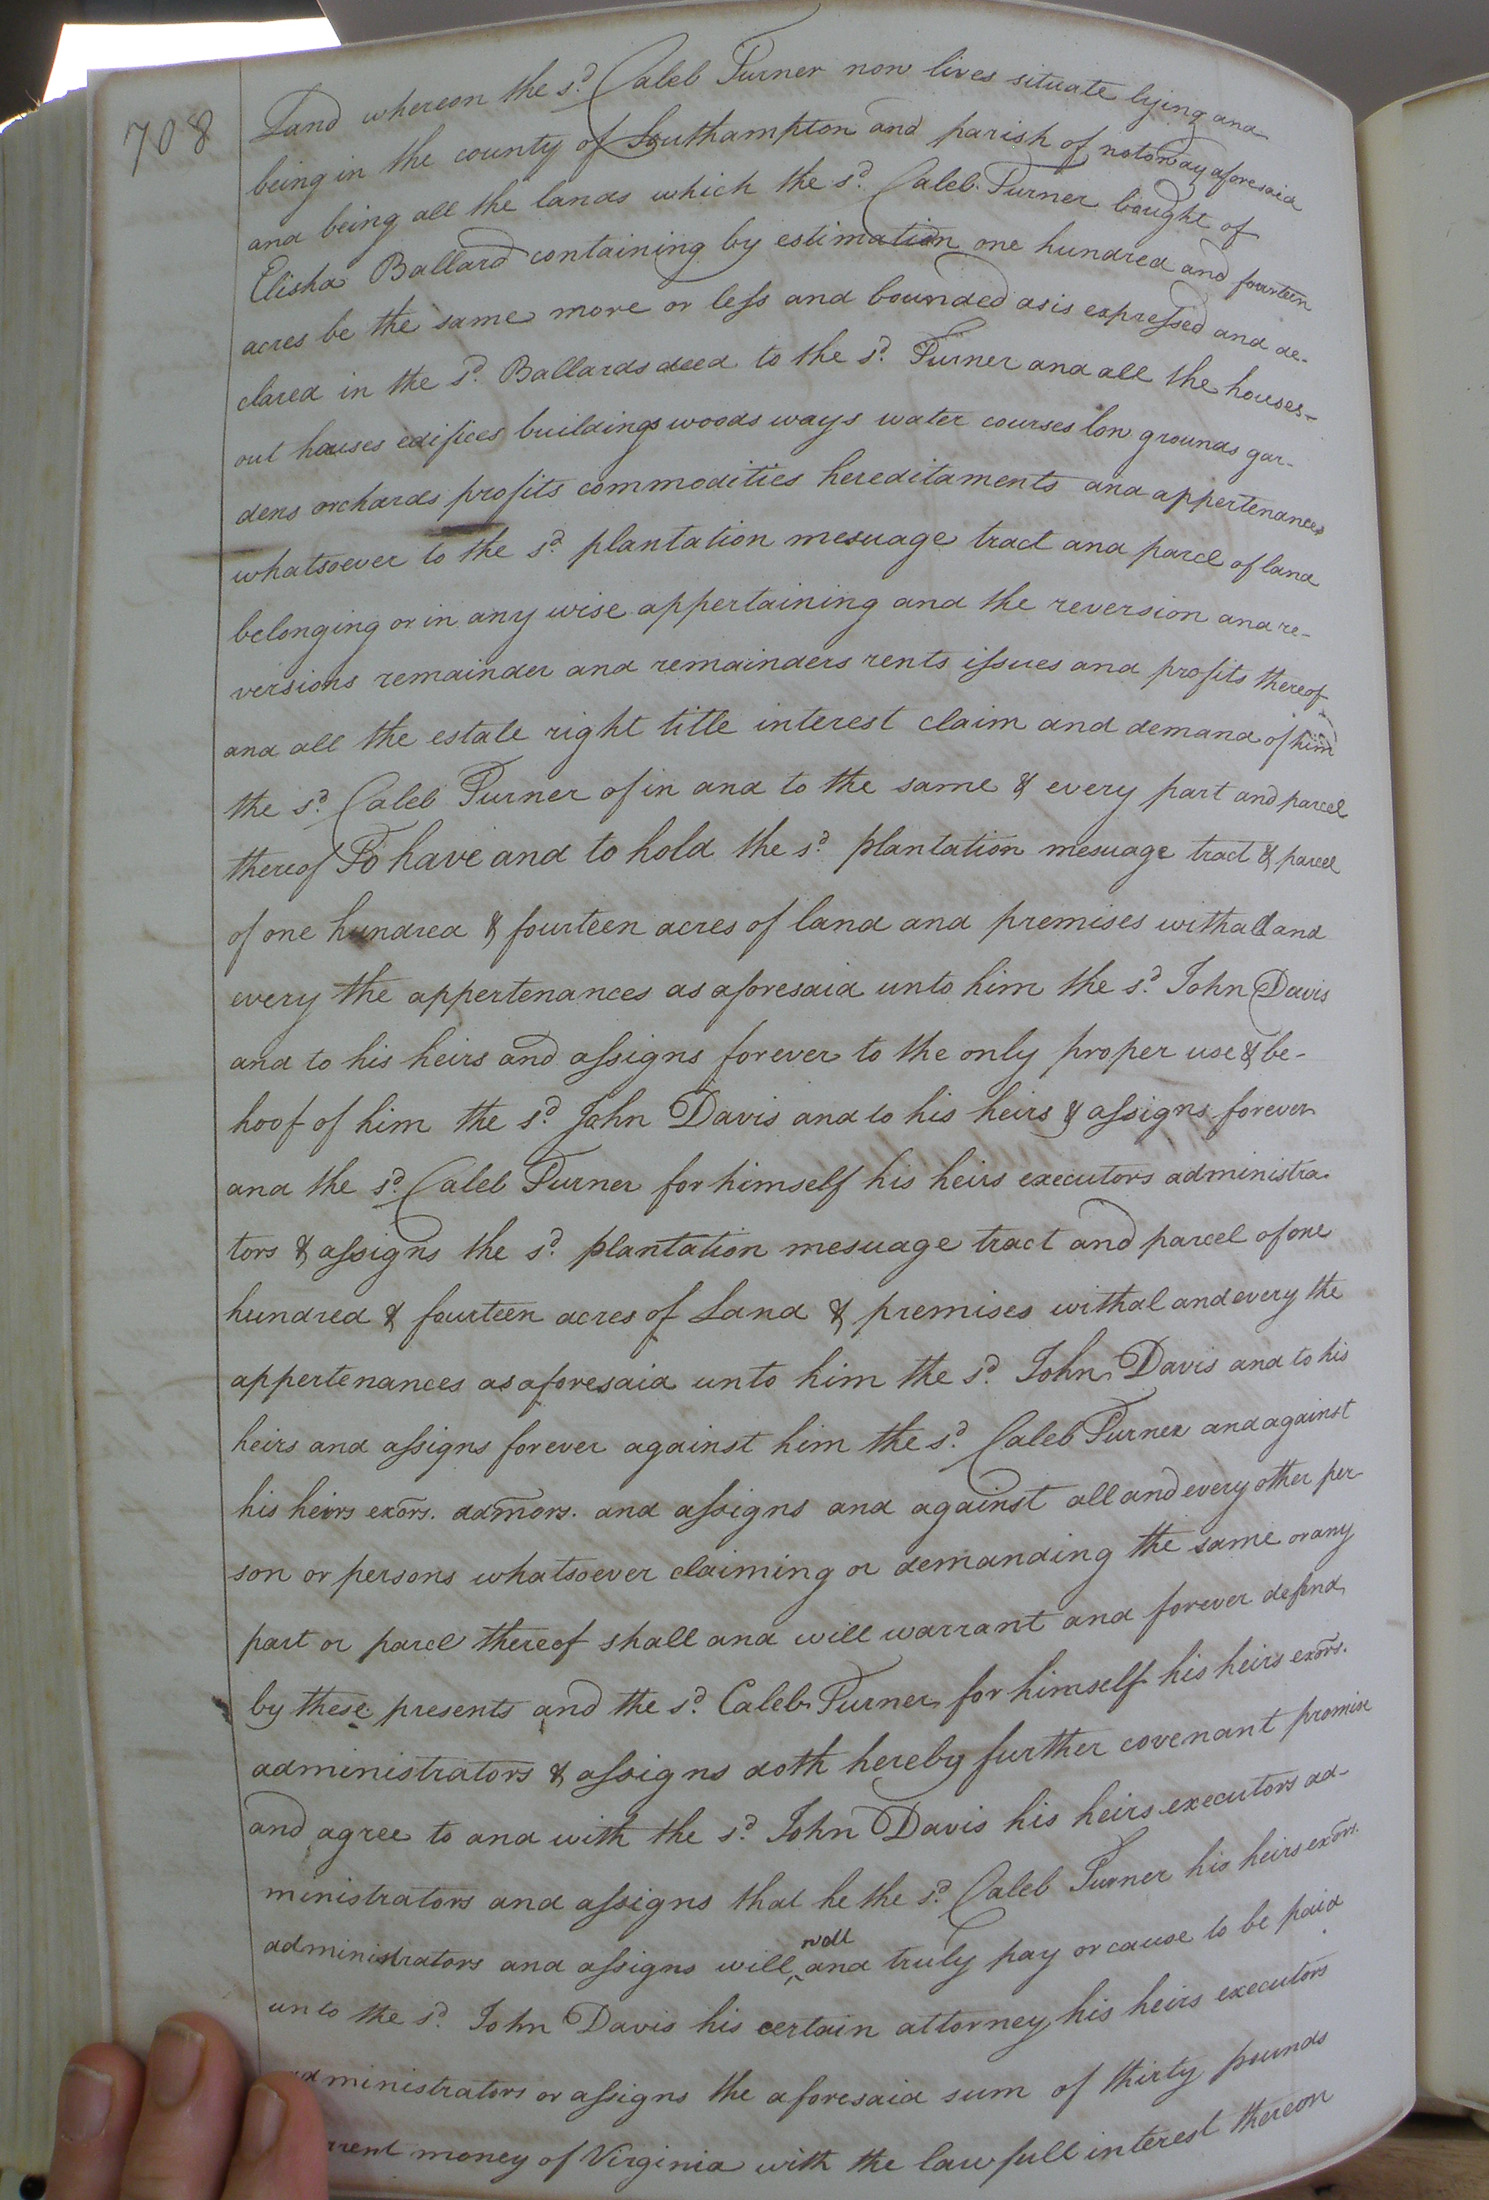 708
Land whereon the sd. Caleb Turner now lives situate lying and
being in the county of Southampton and parish of notoway aforesaid
and being all the lands which the sd. Caleb Turner bought of
Elisha Ballard containing by estimation one hundred and fourteen
acres be the same more or less and bounded as is expressed and de-
clared in the sd. Ballards deed to the sd. Turner and all the houses-
out houses edifices buildings woods ways water courses low grounds gar-
dens orchards profits commodities hereditaments and appertenances
whatsoever to the sd. plantation mesuage tract and parcel of land
belonging or in any wise appertaining and the reversion and re-
versions remainder and remainders rents issues and profits thereof
and all the estate right title interest claim and demand of him
the sd. Caleb Turner of in and to the same & every part and parcel
thereof To have and to hold the sd. plantation mesuage tract & parcel
of one hundred & fourteen acres of land and premises with all and
every the appertenances as aforesaid unto him the sd. John Davis
and to his heirs and assigns forever to the only proper use & be-
hoof of him the sd. John Davis and to his heirs & assigns forever
and the sd. Caleb Turner for himself his heirs executors administra-
tors & assigns the sd. plantation mesuage tract and parcel of one
hundred & fourteen acres of Land & premises withal and every the
appertenances as aforesaid unto him the sd. John Davis and to his
heirs and assigns forever against him the sd. Caleb Turner and against
his heirs exors. admors. and assigns and against all and every other per-
son or persons whatsoever claiming or demanding the same or any
part or parcel thereof shall and will warrant and forever defend
by these presents and the sd. Caleb Turner for himself his heirs exors.
administrators & assigns doth hereby further covenant promise
and agree to and with the sd. John Davis his heirs executors ad-
ministrators and assigns that he the sd. Caleb Turner his heirs exors.
administrators and assigns will well and truly pay or cause to be paid
unto the sd. John Davis his certain attorney his heirs executors
administrators or assigns the aforesaid sum of thirty pounds
rrent money of Virginia with the lawfull interest thereon